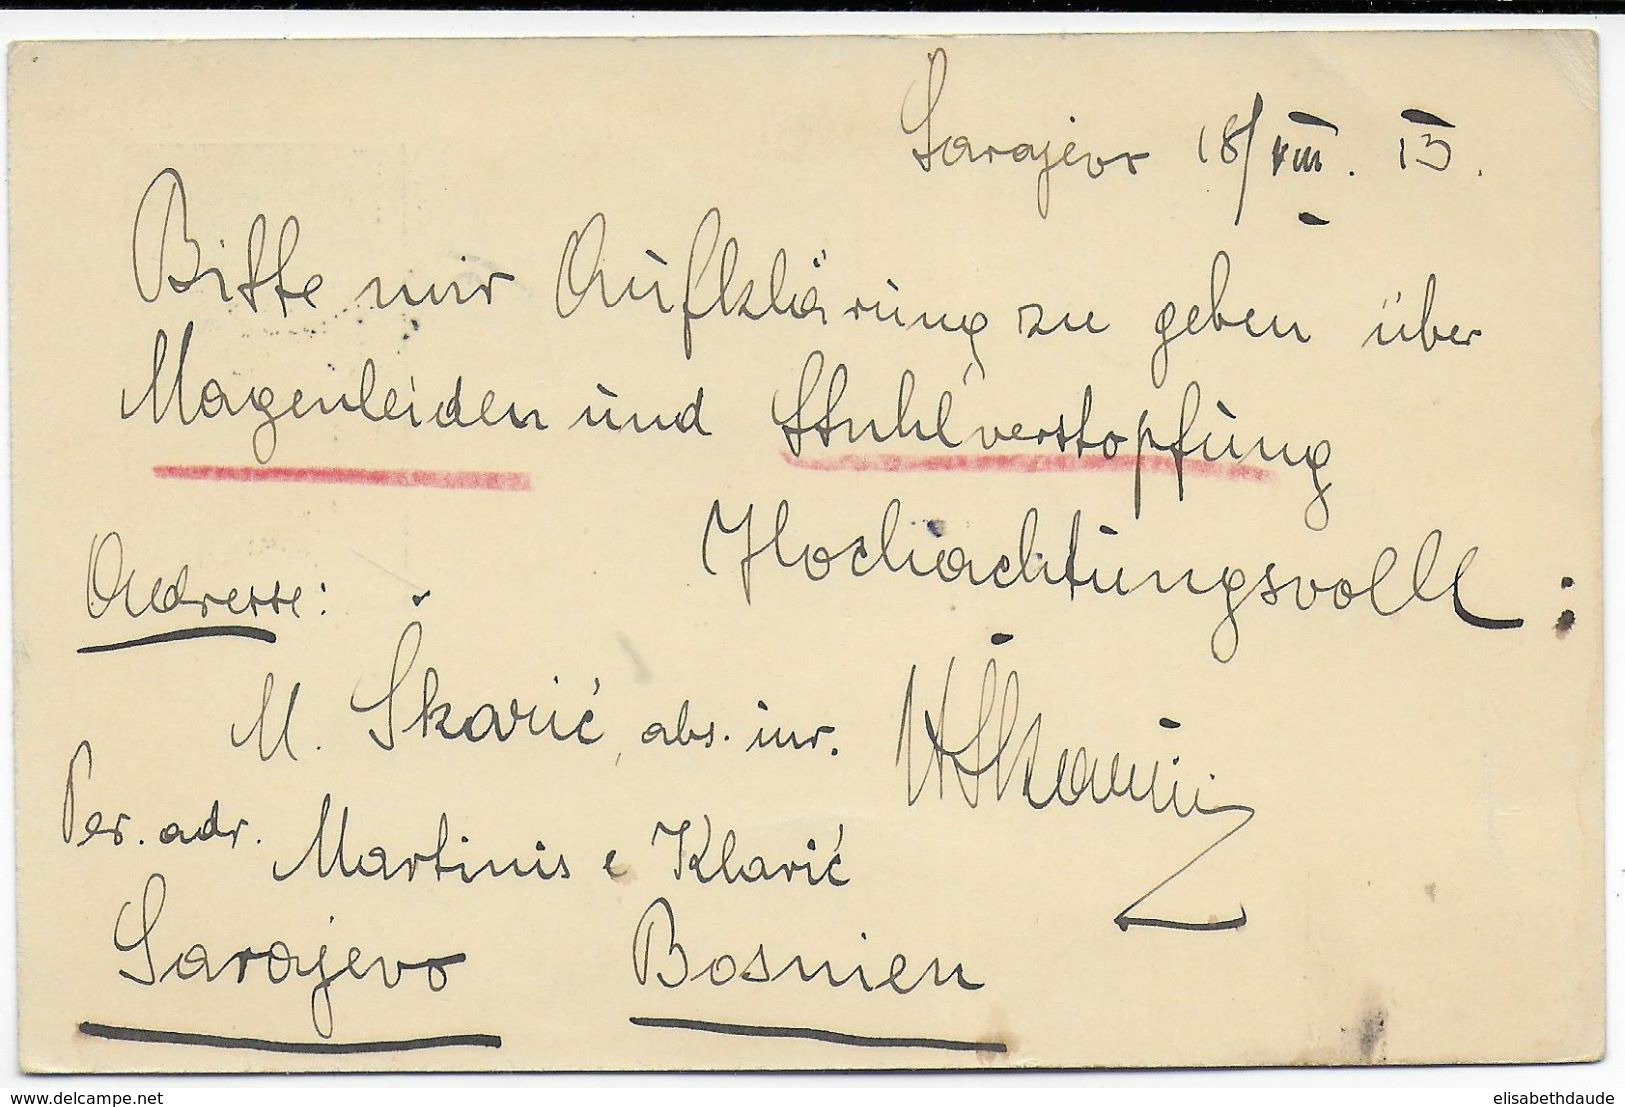 Sarajevo 18/VIII. 13.
Bitte mir Aufklärung zu geben über
Magenleiden und Stuhlverstopfung
Hochachtungsvoll :
Adresse:
M. Škarić, abs. iur.
MŠkarić
Per. adr. Martinis e Klarić
Sarajevo Bosnien
delcampe.net
elisabethdaude